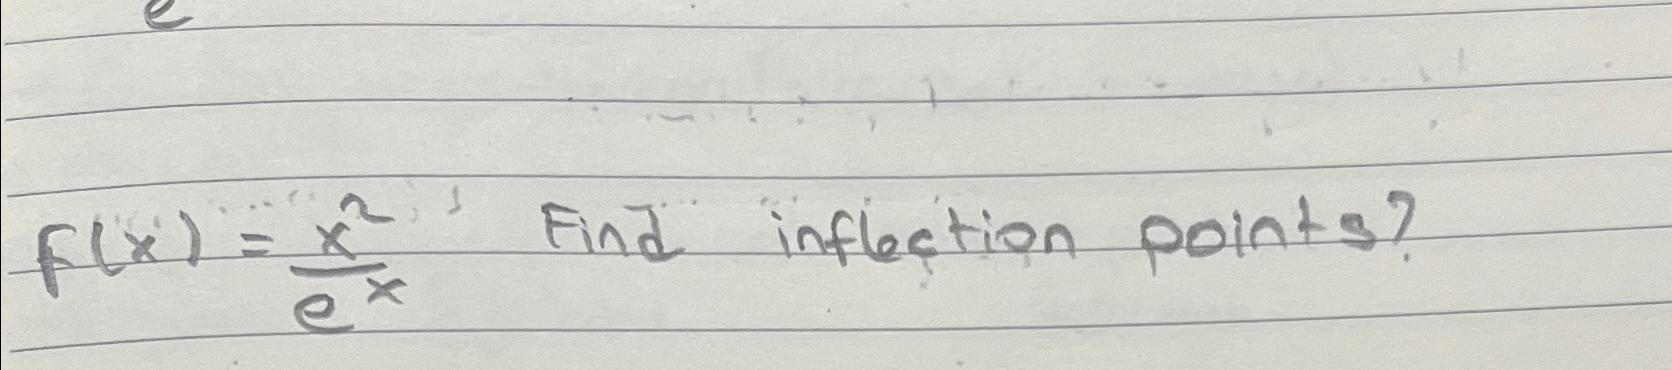 e
f(x) = x²/eˣ Find inflection points?